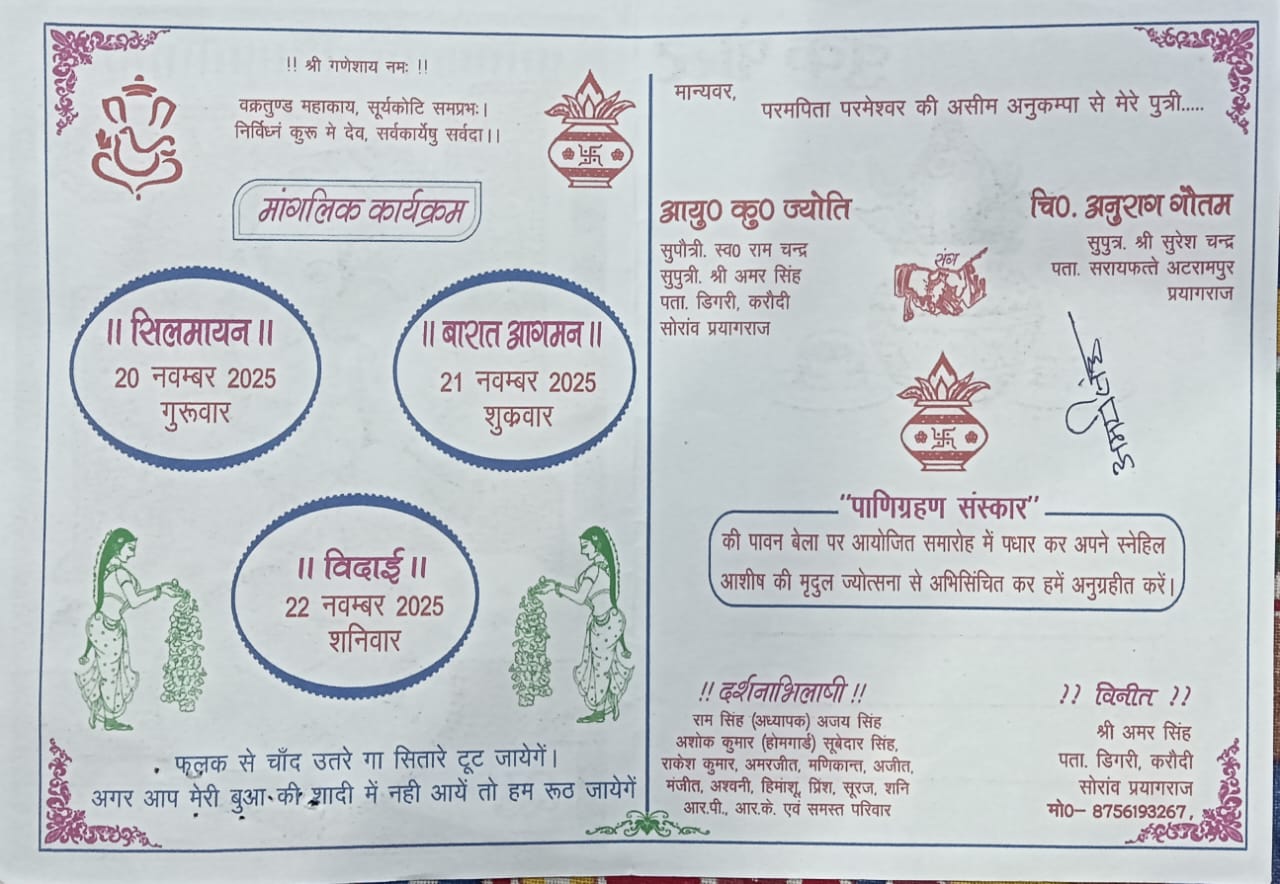 !! श्री गणेशाय नमः !!
वक्रतुण्ड महाकाय, सूर्यकोटि समप्रभः।
निर्विध्नं कुरू मे देव, सर्वकार्येषु सर्वदा।।
मांगलिक कार्यक्रम
।। सिलमायन ।।
20 नवम्बर 2025
गुरूवार
।। बारात आगमन ।।
21 नवम्बर 2025
शुक्रवार
।। विदाई ।।
22 नवम्बर 2025
शनिवार
फलक से चाँद उतरे गा सितारे टूट जायेगें।
अगर आप मेरी बुआ की शादी में नही आयें तो हम रूठ जायेगें
मान्यवर,
परमपिता परमेश्वर की असीम अनुकम्पा से मेरे पुत्री.....
आयु0 कु0 ज्योति
सुपौत्री. स्व0 राम चन्द्र
सुपुत्री. श्री अमर सिंह
पता. डिगरी, करौदी
सोरांव प्रयागराज
संग
चि0. अनुराग गौतम
सुपुत्र. श्री सुरेश चन्द्र
पता. सरायफत्ते अटरामपुर
प्रयागराज
"पाणिग्रहण संस्कार"
की पावन बेला पर आयोजित समारोह में पधार कर अपने स्नेहिल
आशीष की मृदुल ज्योत्सना से अभिसिंचित कर हमें अनुग्रहीत करें।
!! दर्शनाभिलाषी !!
राम सिंह (अध्यापक) अजय सिंह
अशोक कुमार (होमगार्ड) सूबेदार सिंह,
राकेश कुमार, अमरजीत, मणिकान्त, अजीत,
मंजीत, अश्वनी, हिमांशू, प्रिंश, सूरज, शनि
आर.पी., आर.के. एवं समस्त परिवार
?? विनीत ??
श्री अमर सिंह
पता. डिगरी, करौदी
सोरांव प्रयागराज
मो0– 8756193267,